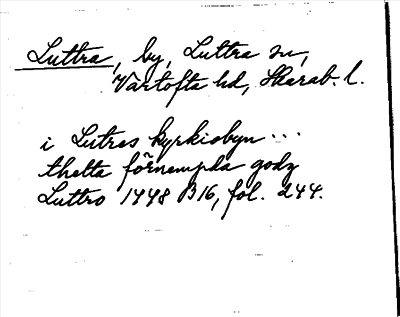 Luttra, by, Luttra sn,
Vartofta hd, Skarab. l.
i Lutres kyrkiobyn ...
thetta förnempda godz
Luttro 1448 B16, fol. 244.